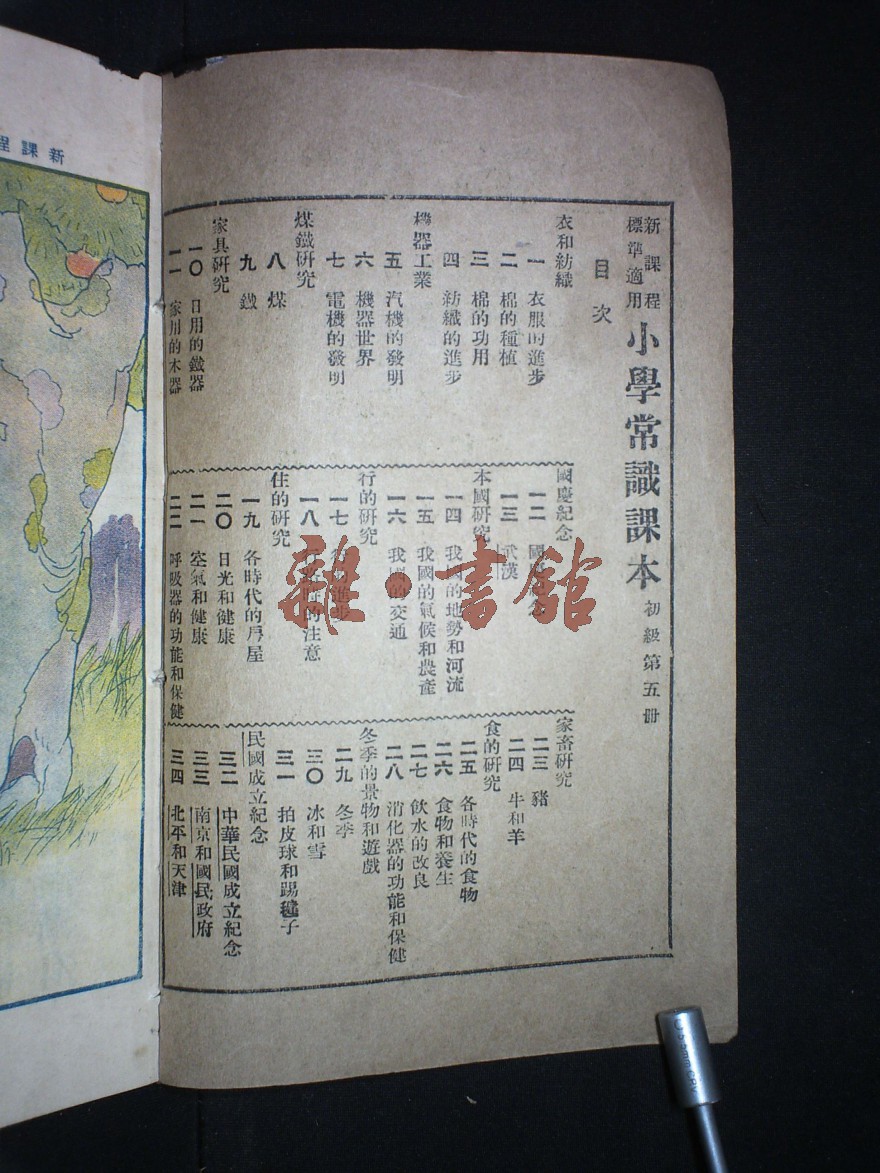 新課程標準適用
小學常識課本 初級第五冊
目次
衣和紡織
一 衣服的進步
二 棉的種植
三 棉的功用
四 紡織的進步
機器工業
五 汽機的發明
六 機器世界
七 電機的發明
煤鐵研究
八 煤
九 鐵
家具研究
一〇 日用的鐵器
一一 家用的木器
國慶紀念
一二 國慶紀念
一三 武漢
本國研究
一四 我國的地勢和河流
一五 我國的氣候和農產
一六 我國的交通
行的研究
一七 行的進步
一八 行路時的注意
住的研究
一九 各時代的房屋
二〇 日光和健康
二一 空氣和健康
二二 呼吸器的功能和保健
家畜研究
二三 豬
二四 牛和羊
食的研究
二五 各時代的食物
二六 食物和養生
二七 飲水的改良
二八 消化器的功能和保健
冬季的景物和遊戲
二九 冬季
三〇 冰和雪
三一 拍皮球和踢毽子
民國成立紀念
三二 中華民國成立紀念
三三 南京和國民政府
三四 北平和天津
新課程
雜·書館